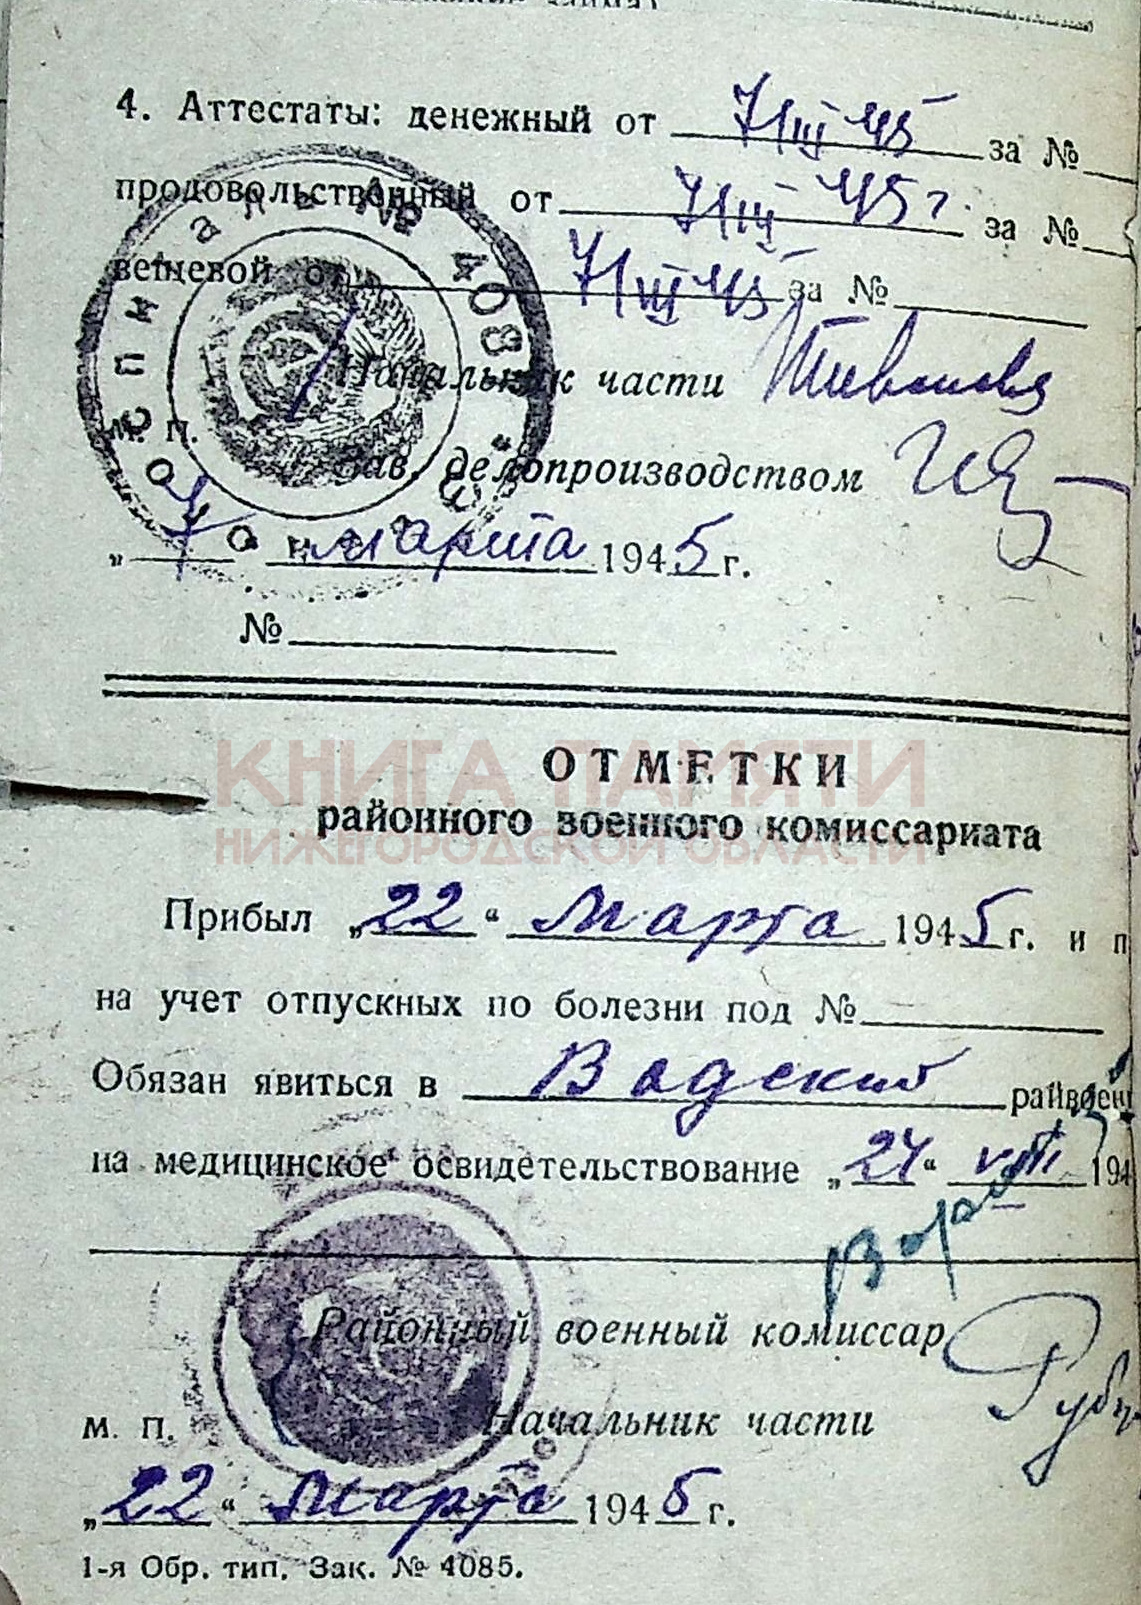 4. Аттестаты: денежный от 7/III 45 за №
продовольственный от 7/III 45 г. за №
вещевой от 7/III 45 за №
Начальник части
М. П.
Зав. делопроизводством
„ 7 марта 1945 г.
№
госпиталь № 408
КНИГА ПАМЯТИ
НИЖЕГОРОДСКОЙ ОБЛАСТИ
ОТМЕТКИ
районного военного комиссариата
Прибыл „22“ Марта 1945 г. и п
на учет отпускных по болезни под №
Обязан явиться в Вадский райвоен
на медицинское освидетельствование „24“ VIII 194
Районный военный комиссар
М. П. Начальник части
„22“ Марта 1945 г.
1-я Обр. тип. Зак. № 4085.